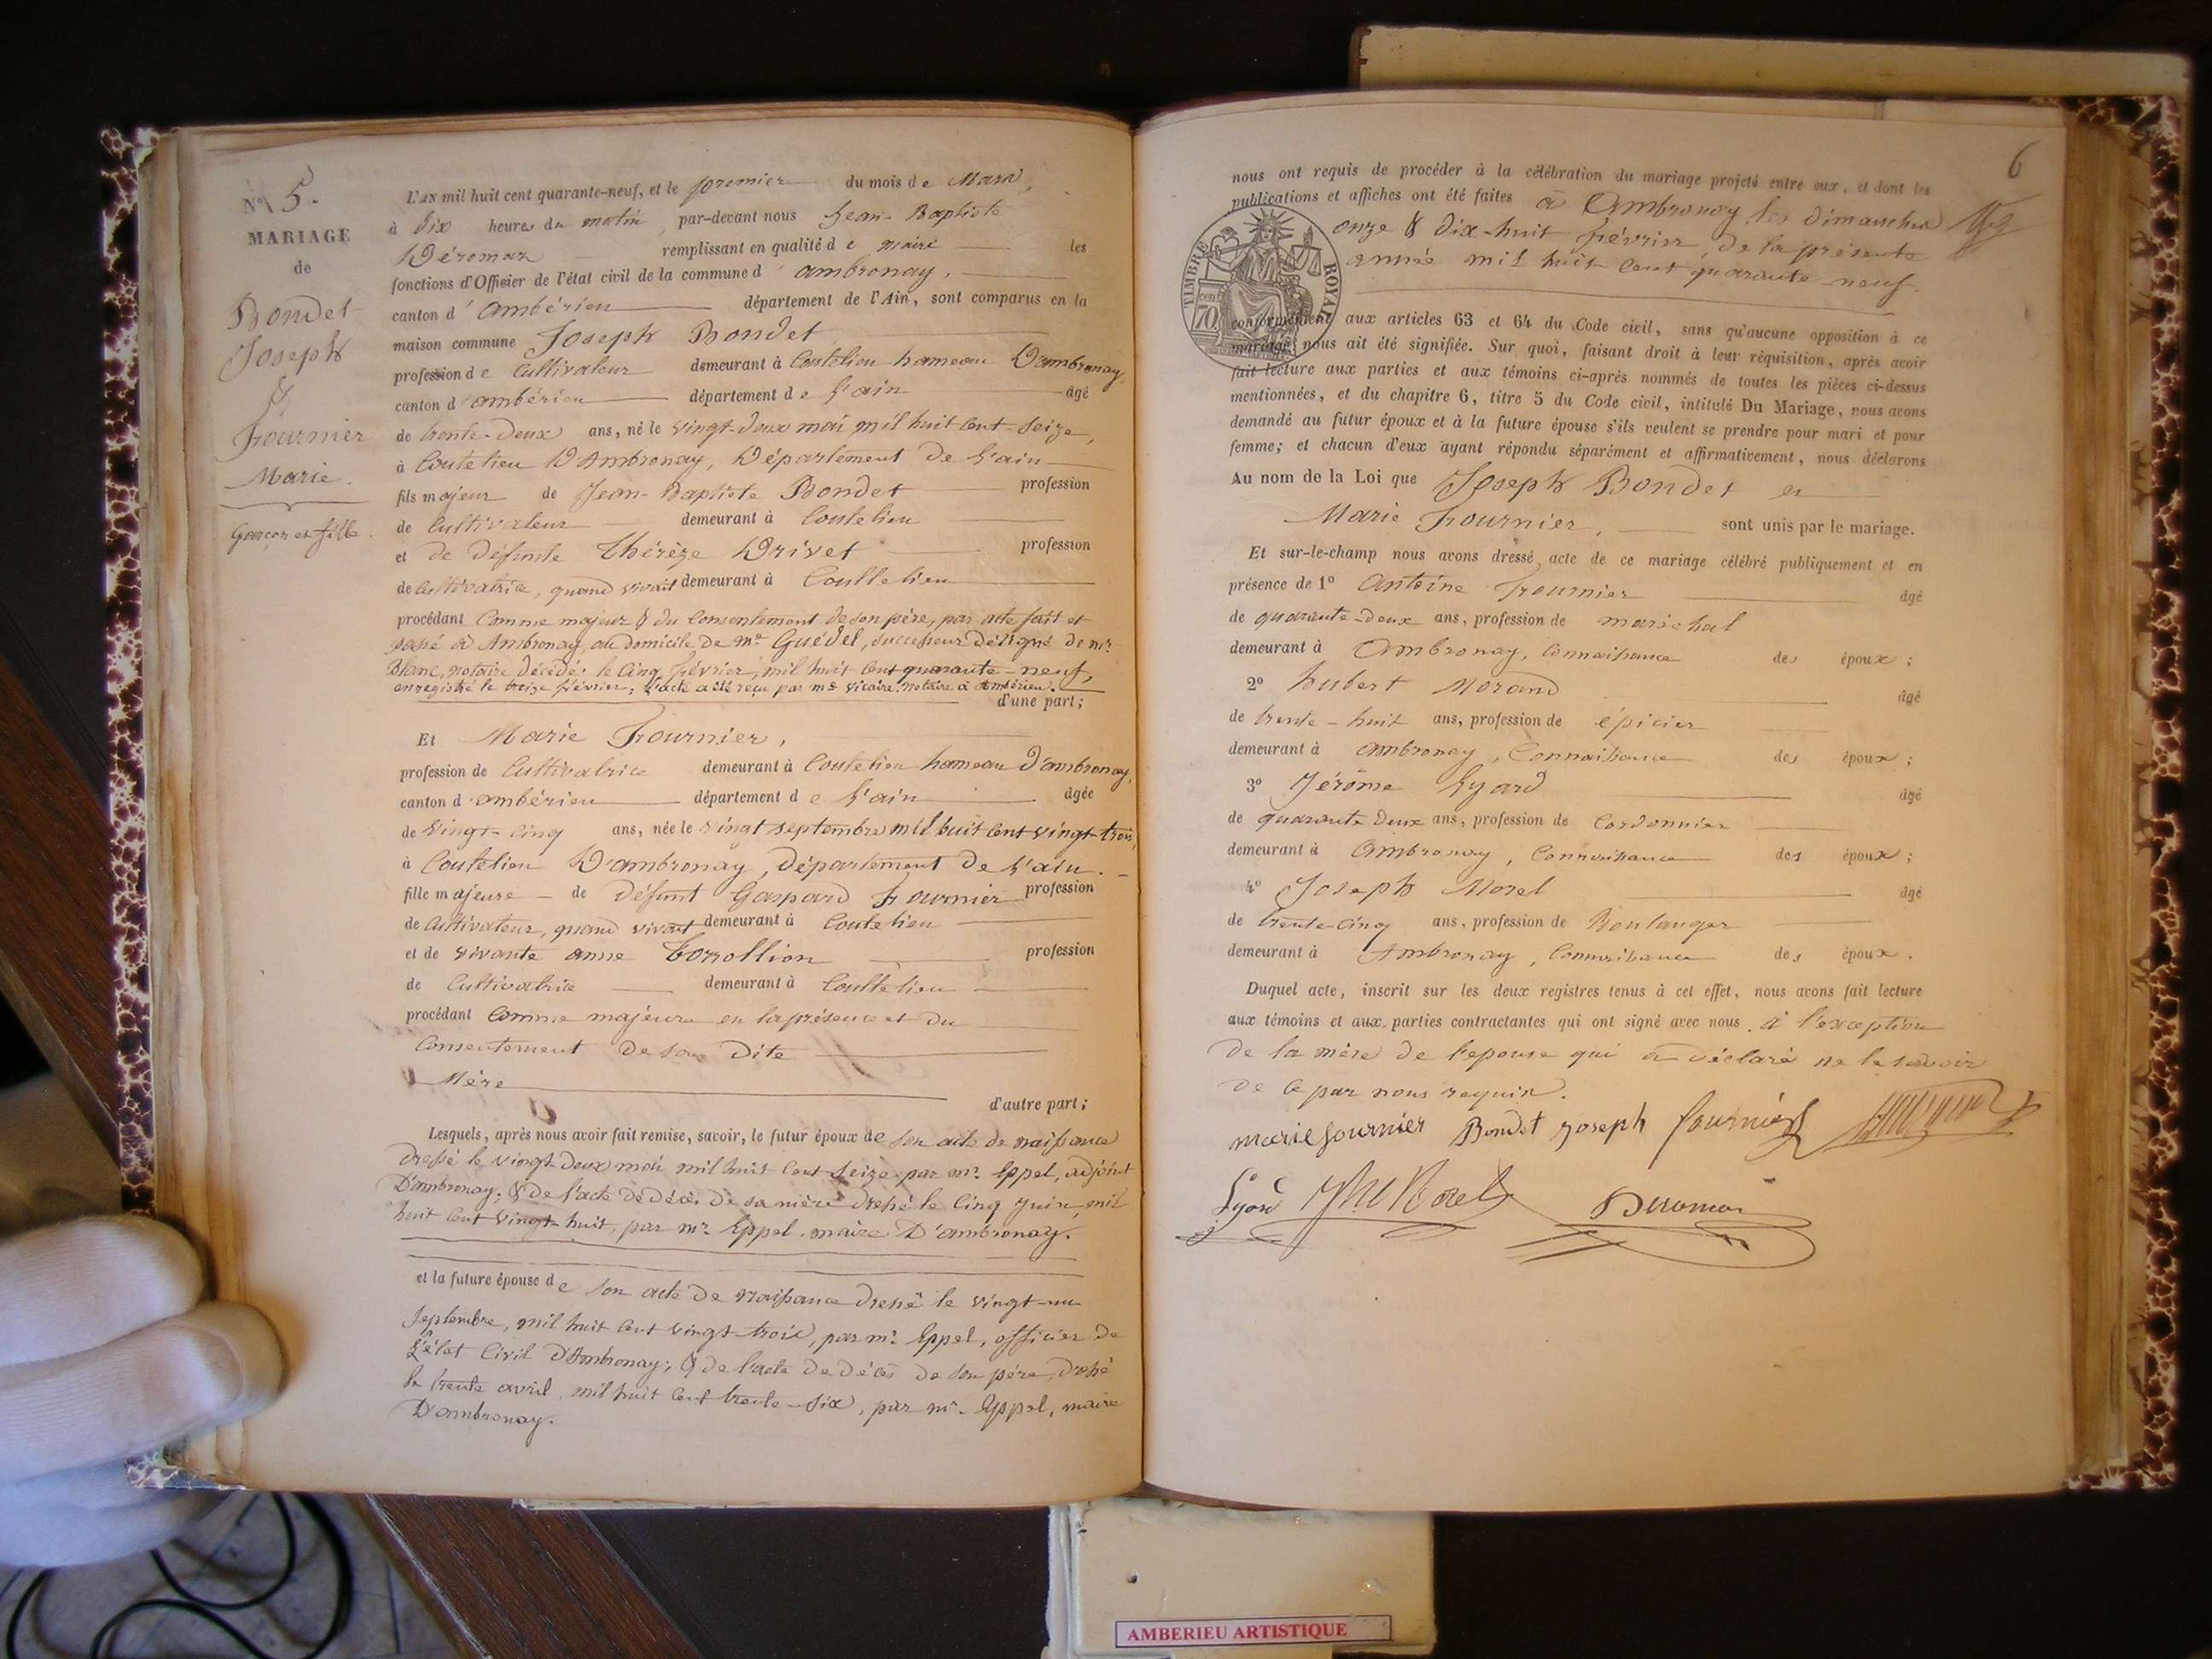 N° 5.
MARIAGE
de
Bondet
Joseph
&
Fournier
Marie.
Garçon et fille.
L'AN mil huit cent quarante-neuf, et le premier du mois de Mars,
à dix heures du matin, par-devant nous Jean-Baptiste
Déromas remplissant en qualité de maire les
fonctions d'Officier de l'état civil de la commune d'ambronay,
canton d'ambérieu département de l'Ain, sont comparus en la
maison commune Joseph Bondet
profession de Cultivateur demeurant à Coutelieu hameau D'ambronay,
canton d'ambérieu département de L'ain âgé
de trente-deux ans, né le vingt-deux mai mil huit cent-seize,
à Coutelieu D'Ambronay, Département de L'ain
fils majeur de Jean-Baptiste Bondet profession
de Cultivateur demeurant à Coutelieu
et de défunte Thérèze Drivet profession
de Cultivatrice, quand vivait demeurant à Couttelieu
procédant Comme majeur & du Consentement de son père, par acte fait et
passé à Ambronay, au domicile de me Guédel, successeur désigné de mr
Blanc, notaire décédé, le Cinq février, mil huit cent quarante-neuf,
enregistré le treize février, l'acte a été reçu par me Vicaire, notaire à Ambérieu.
d'une part;
Et Marie Fournier,
profession de Cultivatrice demeurant à Coutelieu hameau d'ambronay,
canton d'ambérieu département de L'ain âgée
de vingt-cinq ans, née le vingt septembre mil huit cent vingt-trois,
à Coutelieu D'ambronay, département de L'ain.
fille majeure de défunt Gaspard Fournier profession
de Cultivateur, quand vivait demeurant à Coutelieu
et de vivante anne Torrollion profession
de Cultivatrice demeurant à Couttelieu
procédant Comme majeure en la présence et du
Consentement de sa dite
Mère
d'autre part;
Lesquels, après nous avoir fait remise, savoir, le futur époux de son acte de naissance
dressé le vingt-deux mai mil huit cent seize par mr. Eppel, adjoint
D'ambronay, & de l'acte de décès de sa mère dressé le Cinq Juin, mil
huit cent vingt-huit, par mr. Eppel, maire D'ambronay.
et la future épouse de son acte de naissance dressé le vingt-un
Septembre, mil huit cent vingt-trois, par mr. Eppel, officier de
L'état Civil D'Ambronay; & de l'acte de décès de son père, dressé
le trente avril, mil huit cent trente-six, par mr. Eppel, maire
D'ambronay.
6
nous ont requis de procéder à la célébration du mariage projeté entre eux, et dont les
publications et affiches ont été faites à Ambronay, les dimanches
onze & dix-huit février, de la présente
année mil huit cent quarante-neuf.
TIMBRE ROYAL
cen 70
conformément aux articles 63 et 64 du Code civil, sans qu'aucune opposition à ce
mariage nous ait été signifiée. Sur quoi, faisant droit à leur réquisition, après avoir
fait lecture aux parties et aux témoins ci-après nommés de toutes les pièces ci-dessus
mentionnées, et du chapitre 6, titre 5 du Code civil, intitulé Du Mariage, nous avons
demandé au futur époux et à la future épouse s'ils veulent se prendre pour mari et pour
femme; et chacun d'eux ayant répondu séparément et affirmativement, nous déclarons
Au nom de la Loi que Joseph Bondet et
Marie Fournier, sont unis par le mariage.
Et sur-le-champ nous avons dressé acte de ce mariage célébré publiquement et en
présence de 1° Antoine Fournier âgé
de quarante-deux ans, profession de maréchal
demeurant à Ambronay, Connaissance des époux;
2° hubert Morand âgé
de trente-huit ans, profession de épicier
demeurant à ambronay, Connaissance des époux;
3° Jérôme Lyard âgé
de quarante deux ans, profession de Cordonnier
demeurant à Ambronay, Connaissance des époux;
4° Joseph Morel âgé
de trente-cinq ans, profession de Boulanger
demeurant à Ambronay, Connaissance des époux.
Duquel acte, inscrit sur les deux registres tenus à cet effet, nous avons fait lecture
aux témoins et aux parties contractantes qui ont signé avec nous à l'exception
de la mère de l'épouse qui a déclaré ne le savoir
de ce par nous requis.
marie fournier Bondet joseph fournier
Lyard Morel Deromas
AMBERIEU ARTISTIQUE